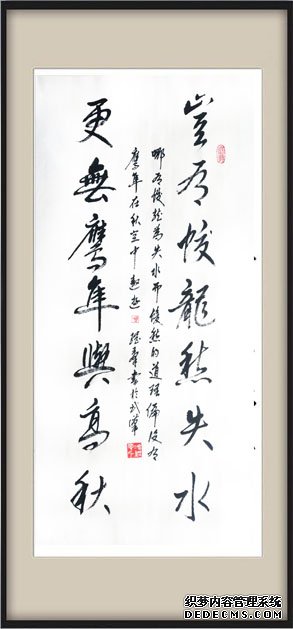 豈有蛟龍愁失水
更無鷹隼與高秋
哪有蛟龍為失水而發愁的道理偏沒有
鷹隼在秋空中遨遊 書於武漢
织梦内容管理系统
DEDECMS.COM